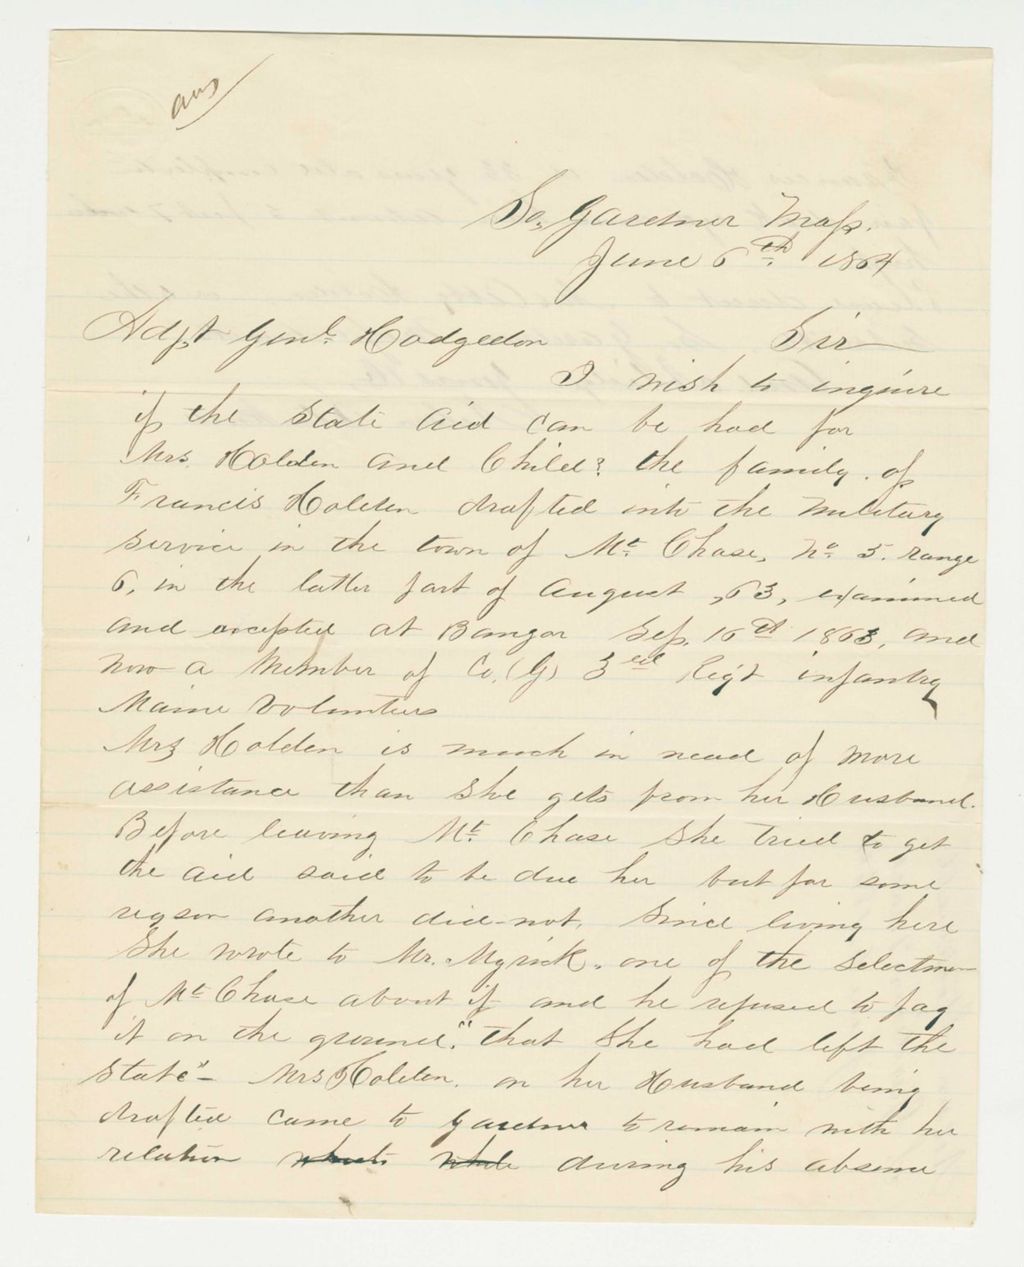 ans
So. Gardner Mass.
June 6th 1864
Adjt Genl. Hodgsdon Sir
I wish to inquire
if the State Aid can be had for
Mrs. Holden and Child? the family of
Francis Holden drafted into the Military
service in the town of Mt. Chase, No. 5. range
6, in the latter part of August ,63, examined
and accepted at Bangor Sep. 16th 1863, and
now a Member of Co. (G) 3ed Regt infantry
Maine Volunteers
Mrs Holden is much in need of more
assistance than She gets from her Husband.
Before leaving Mt. Chase She tried to get
the aid said to be due her but for some
reason another did-not. Since living here
She wrote to Mr. Myrick, one of the Selectmen
of Mt Chase about it and he refused to pay
it on the ground, "that She had left the
State"- Mrs Holden, on her Husband being
drafted came to Gardner to remain with her
relation during his absence